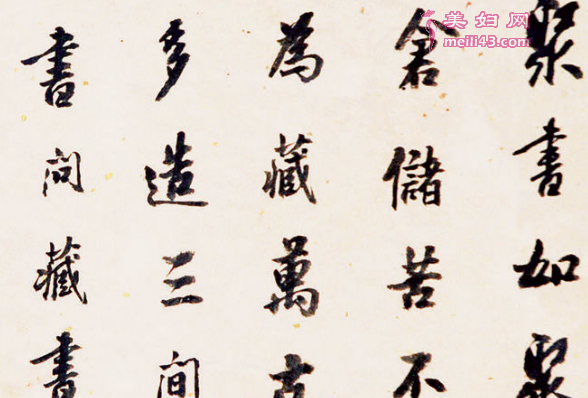 聚書如聚
倉儲苦不
為藏萬古
多造三間
書問藏書
美妇网
meili43.com